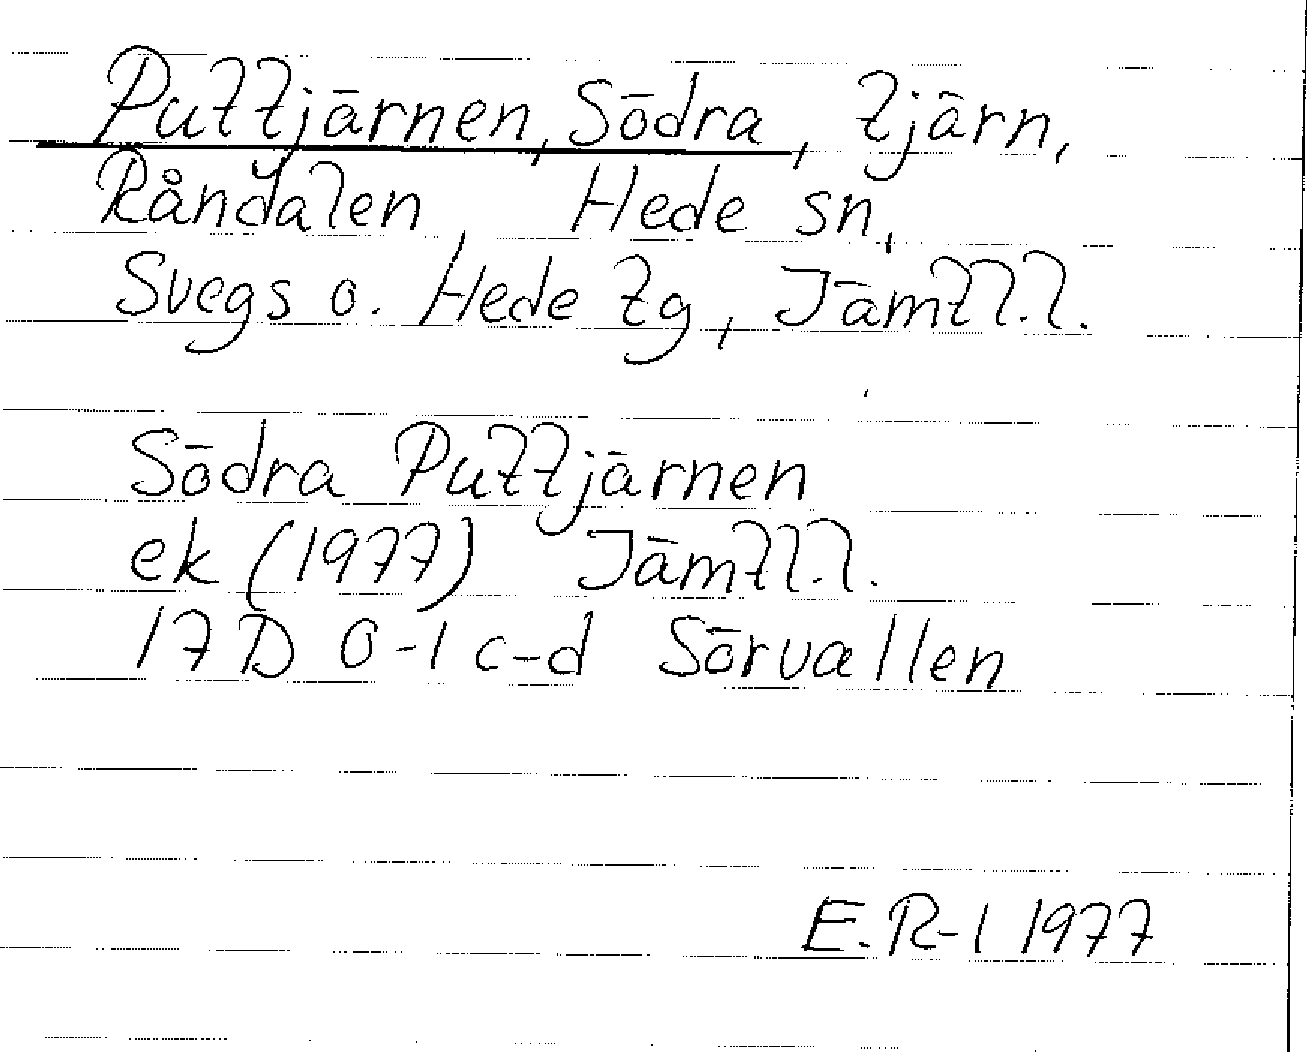 Puttjärnen, Södra, tjärn,
Råndalen, Hede sn,
Svegs o. Hede tg, Jämtl.l.
Södra Puttjärnen
ek (1977) Jämtl.l.
17D 0-1 c-d Sörvallen
E. R-l 1977